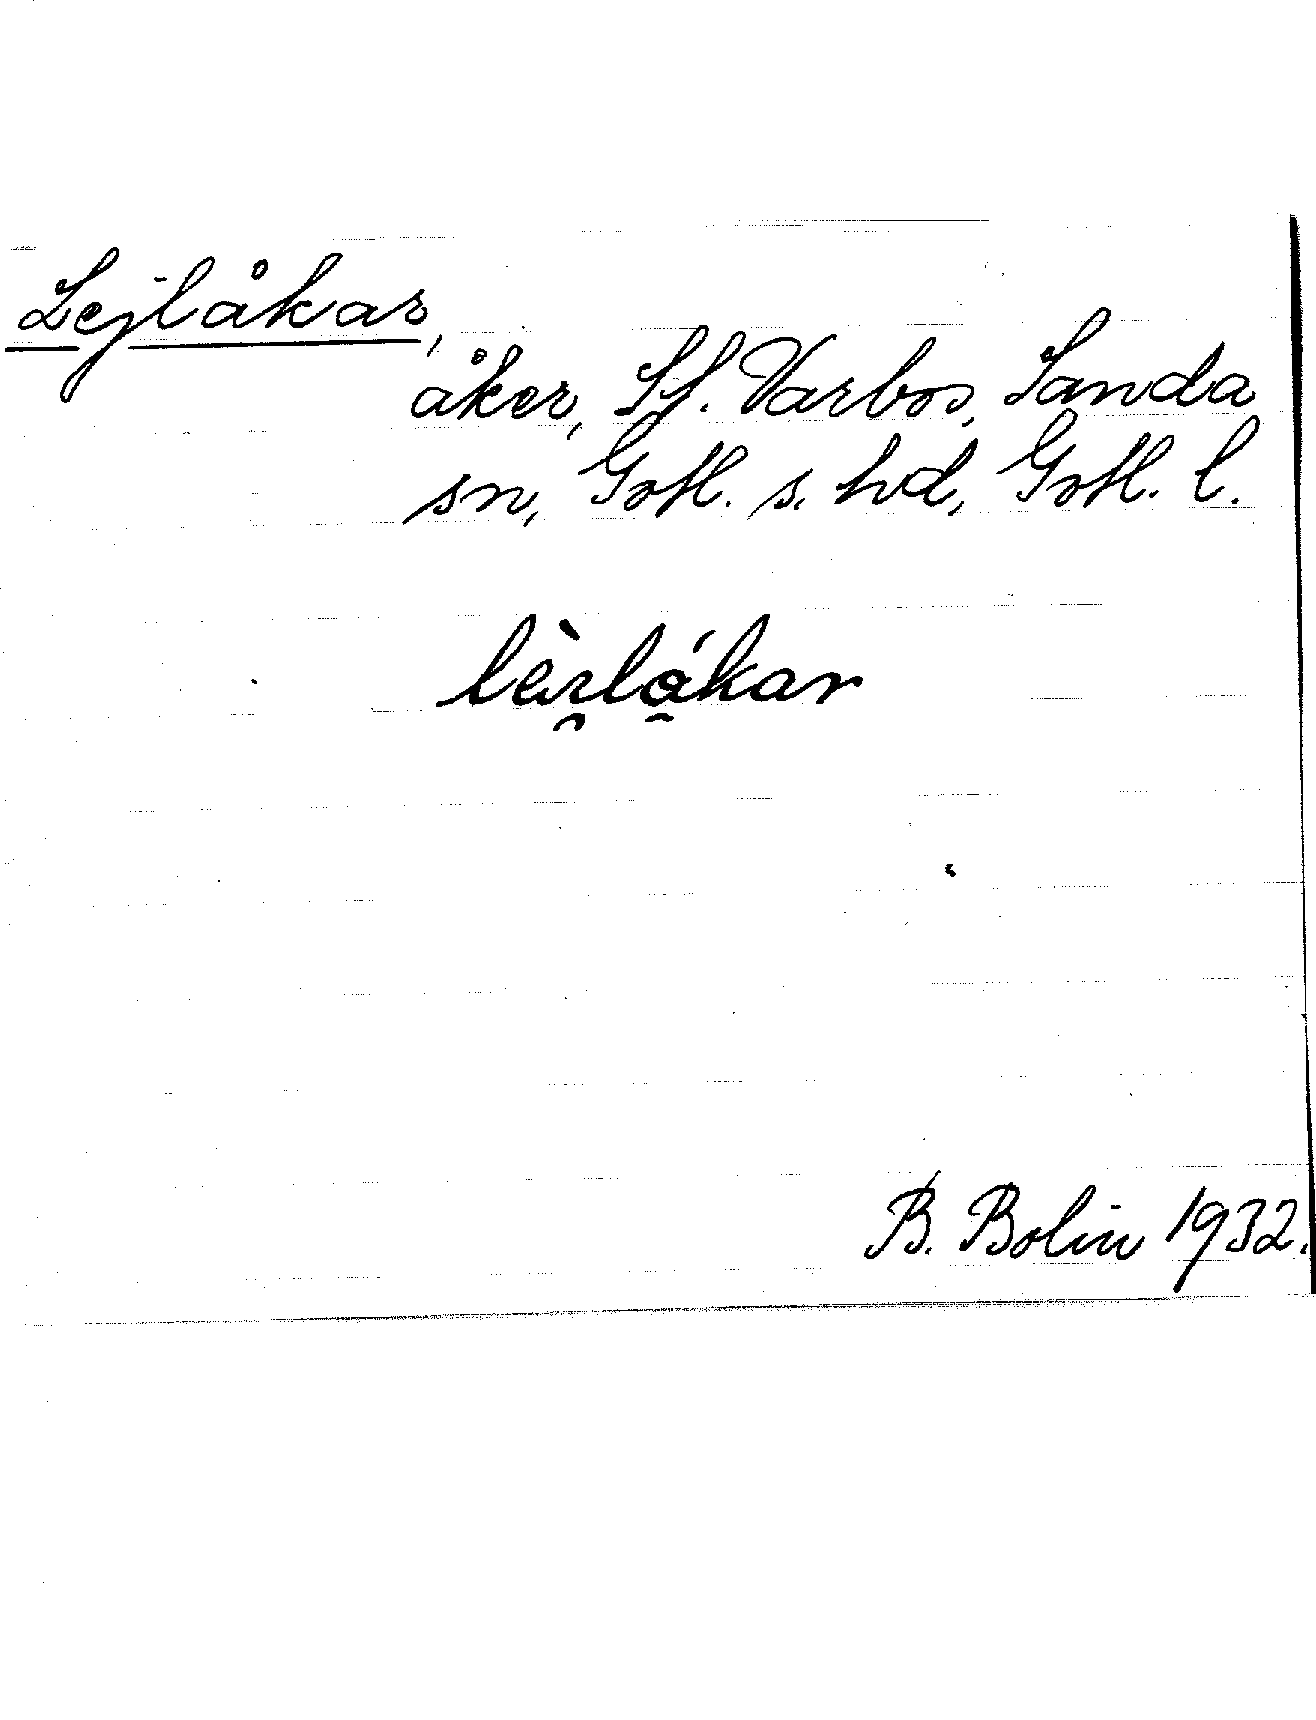 Lejlåkar,
åker, Sf. Varbos, Sanda
sn, Gotl. s. hd, Gotl. l.
B. Bolin 1932.